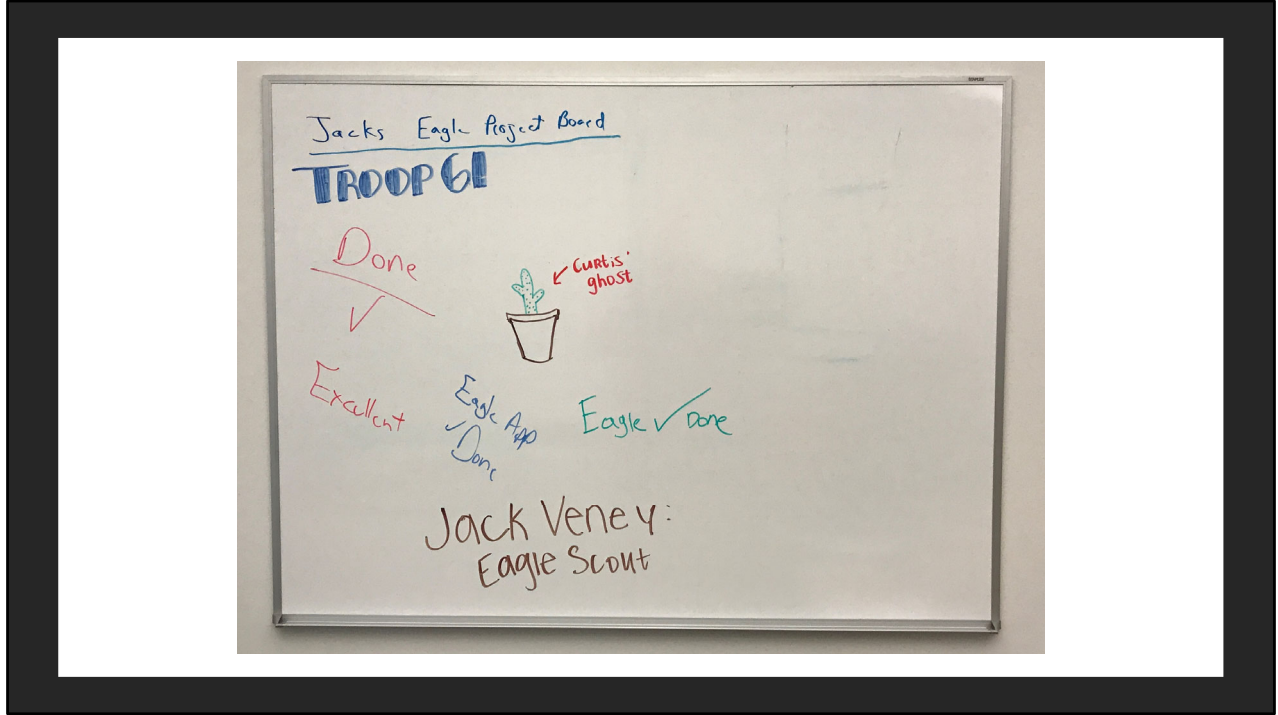 Jacks Eagle Project Board
TROOP 61
Done
✓
Curtis'
ghost
Excellent
Eagle App
✓ Done
Eagle ✓ Done
Jack Veney:
Eagle Scout